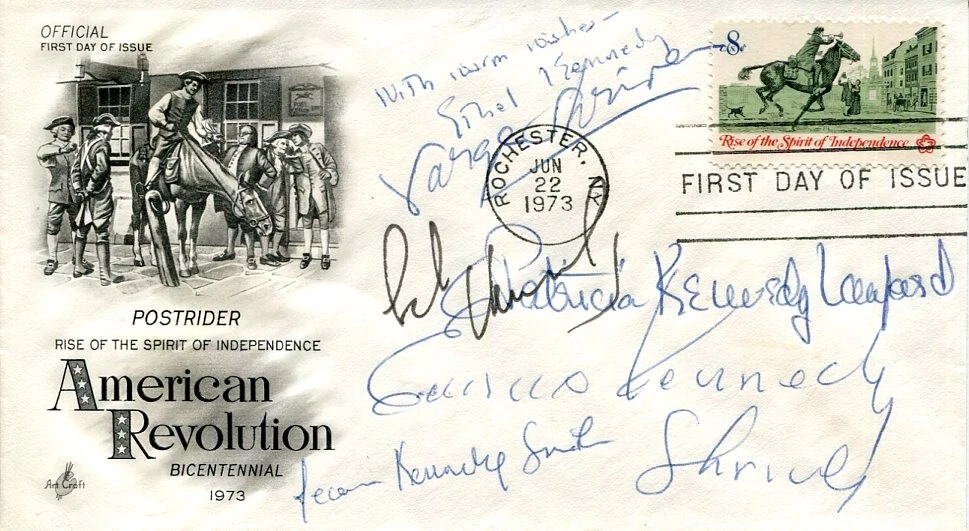 OFFICIAL
FIRST DAY OF ISSUE
With warm wishes
Ethel Kennedy
Sargent Shriver
8c
Rise of the Spirit of Independence
ROCHESTER, NY
JUN
22
1973
FIRST DAY OF ISSUE
Patricia Kennedy Lawford
Eunice Kennedy
Shriver
Jean Kennedy Smith
POSTRIDER
RISE OF THE SPIRIT OF INDEPENDENCE
American
Revolution
BICENTENNIAL
1973
Art Craft